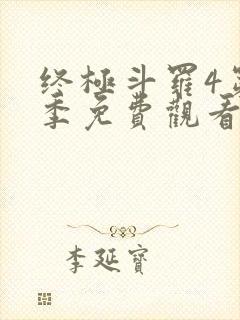 终極斗羅4第
季免費觀看
李延寶